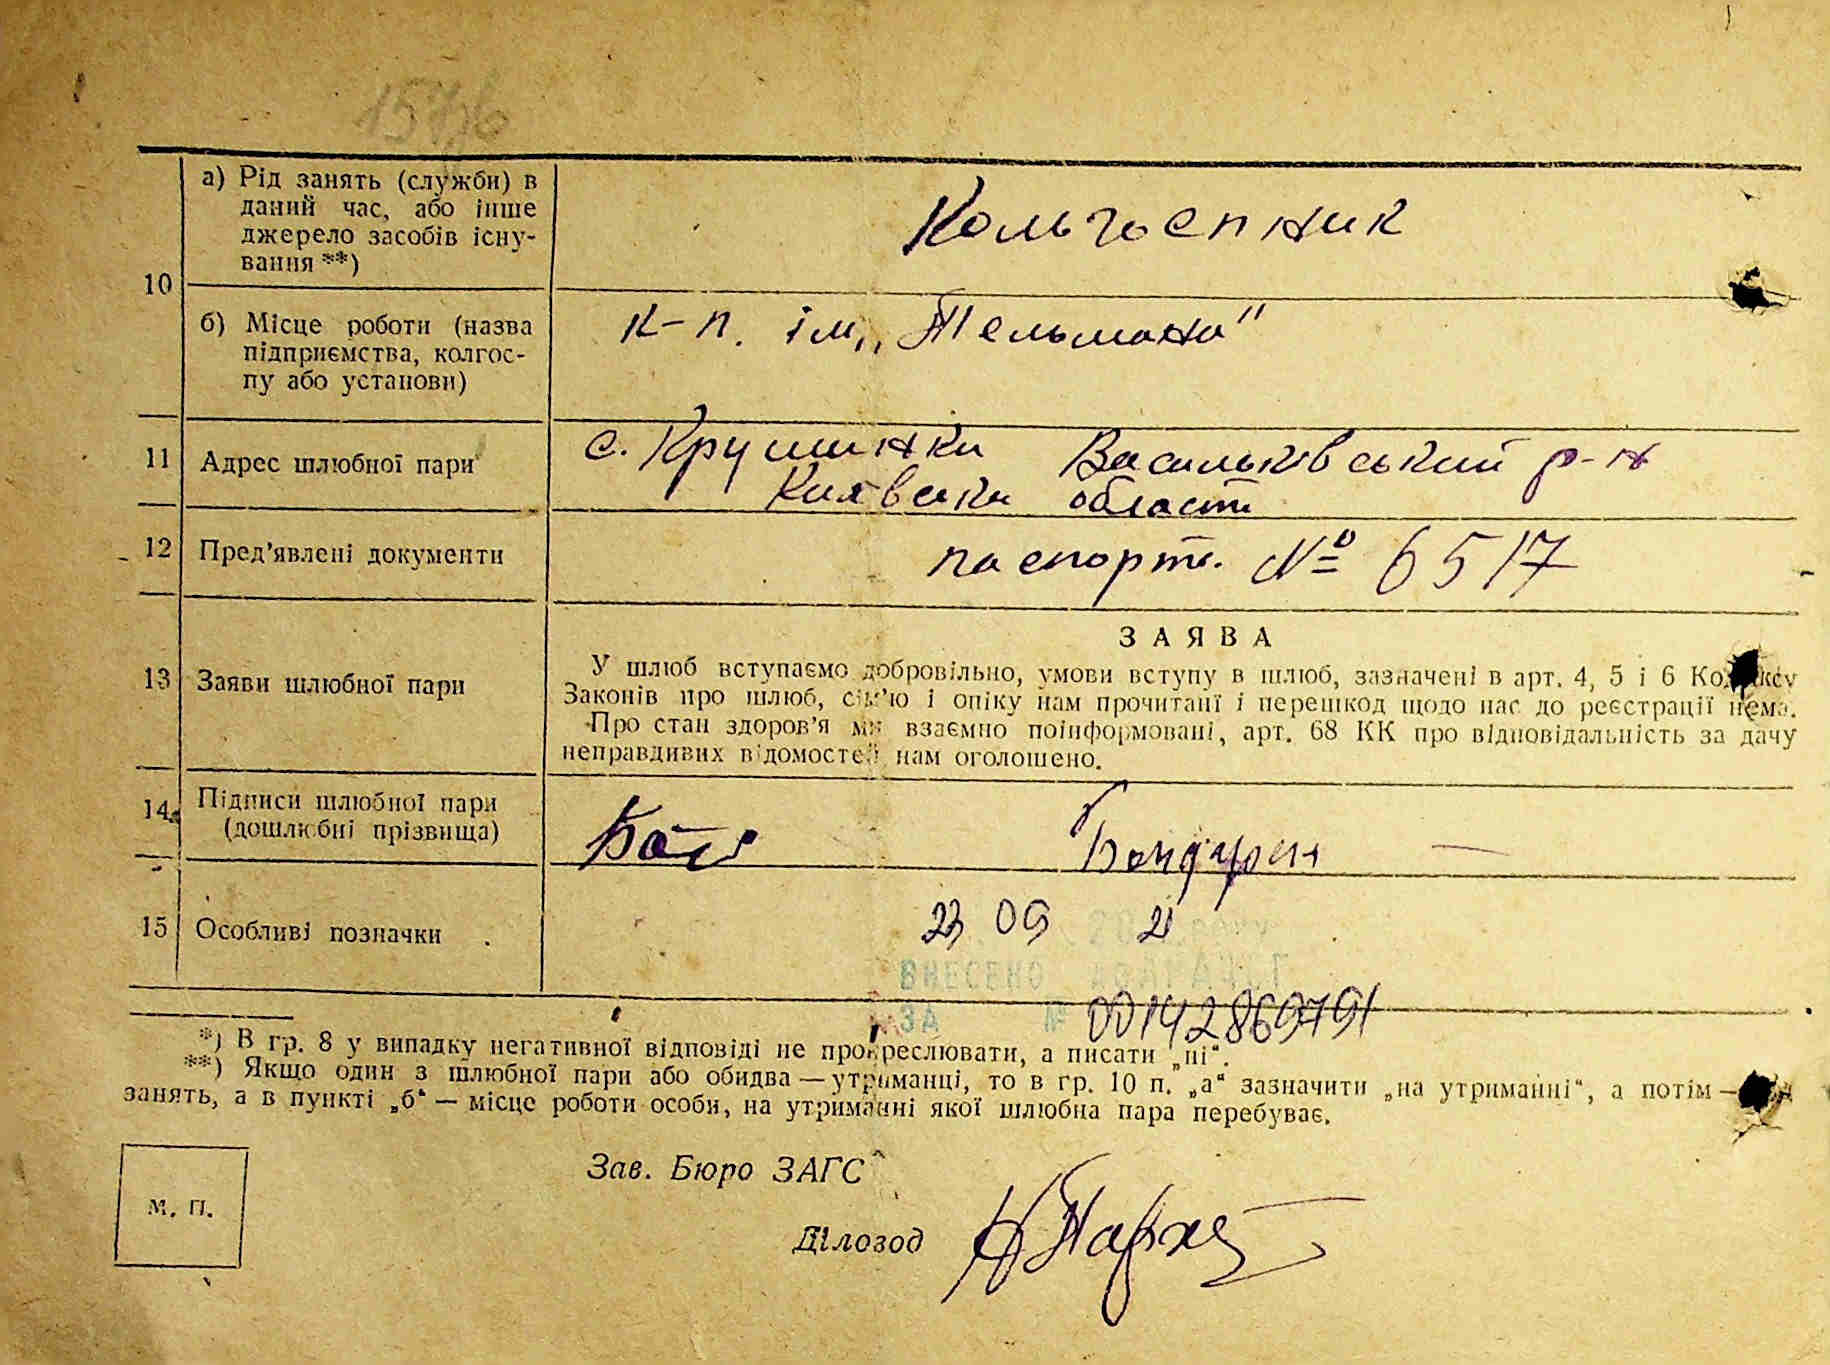 1576
10
а) Рід занять (служби) в
даний час, або інше
джерело засобів існу-
вання **)
Кольгоспник
б) Місце роботи (назва
підприємства, колгос-
пу або установи)
к-п. ім. „Тельмана"
11
Адрес шлюбної пари
с. Крушинка Васильківський р-н
Київська області
12
Пред'явлені документи
паспорт. № 6517
13
Заяви шлюбної пари
ЗАЯВА
У шлюб вступаємо добровільно, умови вступу в шлюб, зазначені в арт. 4, 5 і 6 Кодексу
Законів про шлюб, сім'ю і опіку нам прочитані і перешкод щодо нас до реєстрації нема.
Про стан здоров'я ми взаємно поінформовані, арт. 68 КК про відповідальність за дачу
неправдивих відомостей нам оголошено.
14
Підписи шлюбної пари
(дошлюбні прізвища)
Бондарен
15
Особливі позначки
23 09 2021 року
ВНЕСЕНО ДО ДРАЦСГ
ЗА № 00142869791
*) В гр. 8 у випадку негативної відповіді не прокреслювати, а писати „ні“.
**) Якщо один з шлюбної пари або обидва — утриманці, то в гр. 10 п. „а“ зазначити „на утриманні“, а потім —
занять, а в пункті „б“ — місце роботи особи, на утриманні якої шлюбна пара перебуває.
Зав. Бюро ЗАГС
М. П.
Діловод